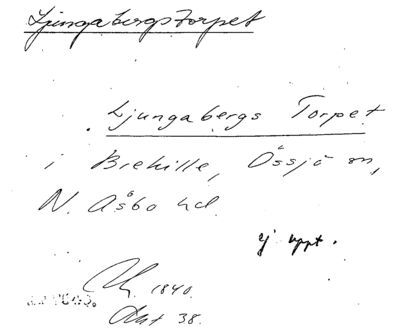 Ljungabergstorpet
Ljungabergs Torpet
i Brehille, Össjö sn,
N. Åsbo hd.
ej uppt.
1840.
Akt 38.